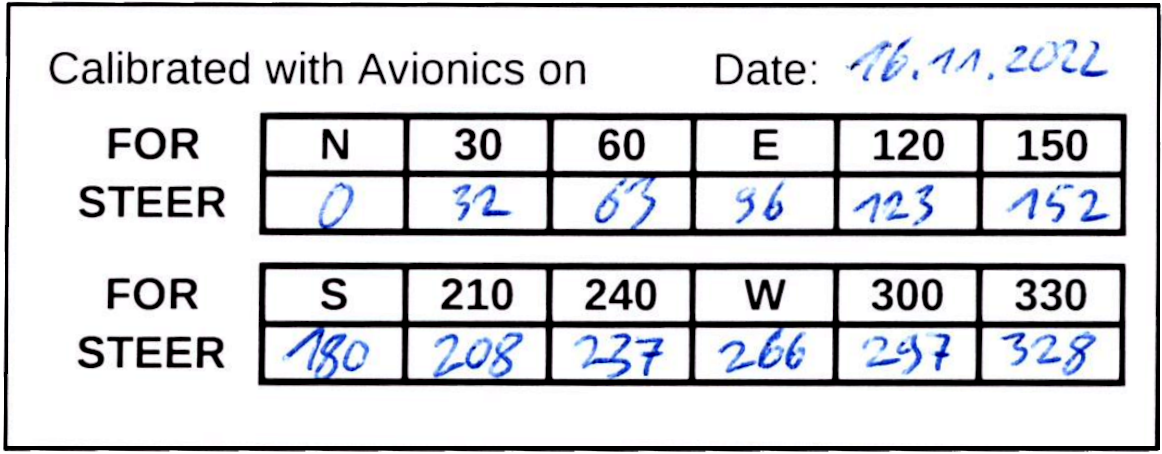 Calibrated with Avionics on Date: 16.11.2022
FOR N 30 60 E 120 150
STEER 0 32 63 96 123 152
FOR S 210 240 W 300 330
STEER 180 208 237 266 297 328